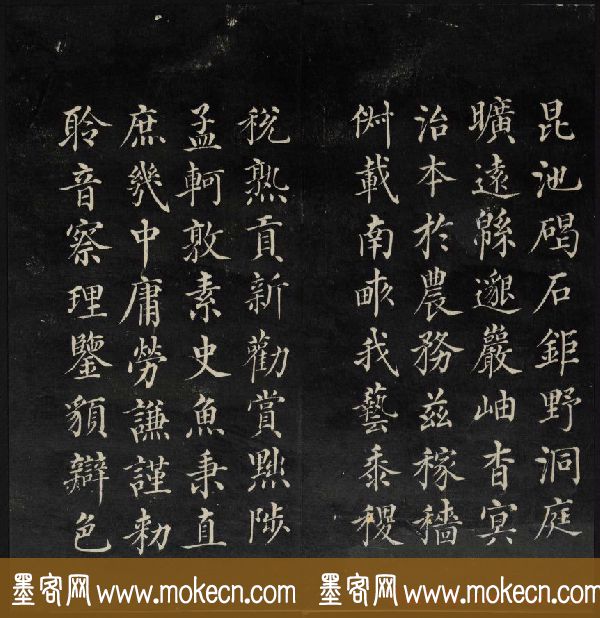 昆池碣石鉅野洞庭
曠遠緜邈巖岫杳冥
治本於農務茲稼穡
俶載南畝我藝黍稷
稅熟貢新勸賞黜陟
孟軻敦素史魚秉直
庶幾中庸勞謙謹勑
聆音察理鑒貌辯色
墨客网 www.mokecn.com
墨客网 www.mokecn.com